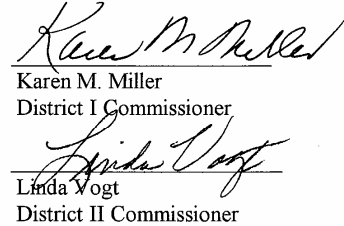 Karen M Miller
Karen M. Miller
District I Commissioner
Linda Vogt
Linda Vogt
District II Commissioner